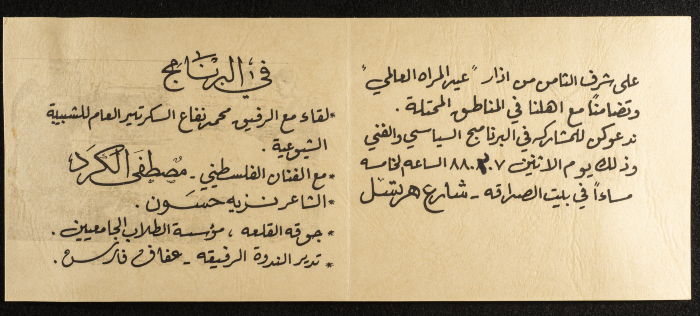 على شرف الثامن من اذار "عيد المراه العالمي"
وتضامناً مع اهلنا في المناطق المحتلة .
ندعوكن للمشاركه في البرنامج السياسي والفني
وذلك يوم الاثنين ٨٨.٣.٧ الساعه الخامسه
مساءاً في بيت الصداقه - شارع هرتسل
في البرنامج
* لقاء مع الرفيق محمد نفاع السكرتير العام للشبيبة
الشيوعية .
* مع الفنان الفلسطيني - مصطفى الكرد
* الشاعر نزيه حسون .
* جوقه القلعه ، مؤسسة الطلاب الجامعيين .
* تدير الندوة الرفيقه - عفاف فارس .